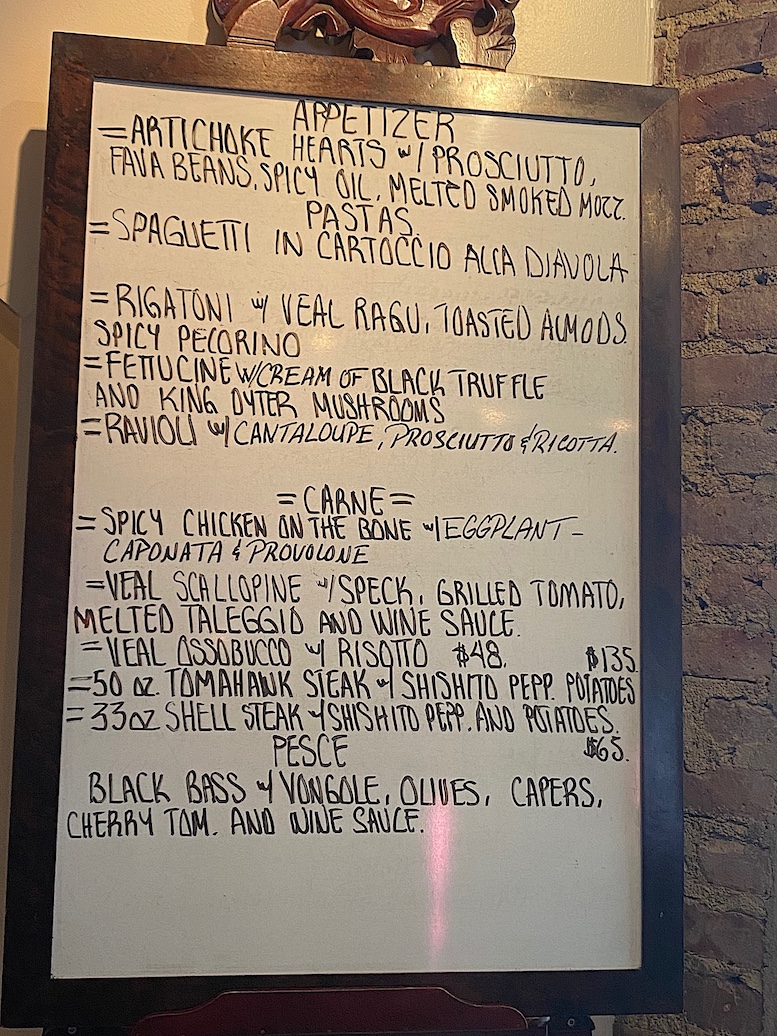 APPETIZER
=ARTICHOKE HEARTS w/ PROSCIUTTO,
FAVA BEANS, SPICY OIL, MELTED SMOKED MOZZ.
PASTAS.
=SPAGUETTI IN CARTOCCIO ALLA DIAVOLA
=RIGATONI w/ VEAL RAGU, TOASTED ALMODS
SPICY PECORINO
=FETTUCINE W/CREAM OF BLACK TRUFFLE
AND KING OYTER MUSHROOMS
=RAVIOLI w/ CANTALOUPE, PROSCIUTTO & RICOTTA.
=CARNE=
=SPICY CHICKEN ON THE BONE w/ EGGPLANT-
CAPONATA & PROVOLONE
=VEAL SCALLOPINE w/ SPECK, GRILLED TOMATO,
MELTED TALEGGIO AND WINE SAUCE.
=VEAL OSSOBUCCO w/ RISOTTO $48. $135
=50 OZ. TOMAHAWK STEAK w/ SHISHITO PEPP. POTATOES
=33 OZ SHELL STEAK w/ SHISHITO PEPP. AND POTATOES.
PESCE $65.
BLACK BASS w/ VONGOLE, OLIVES, CAPERS,
CHERRY TOM. AND WINE SAUCE.